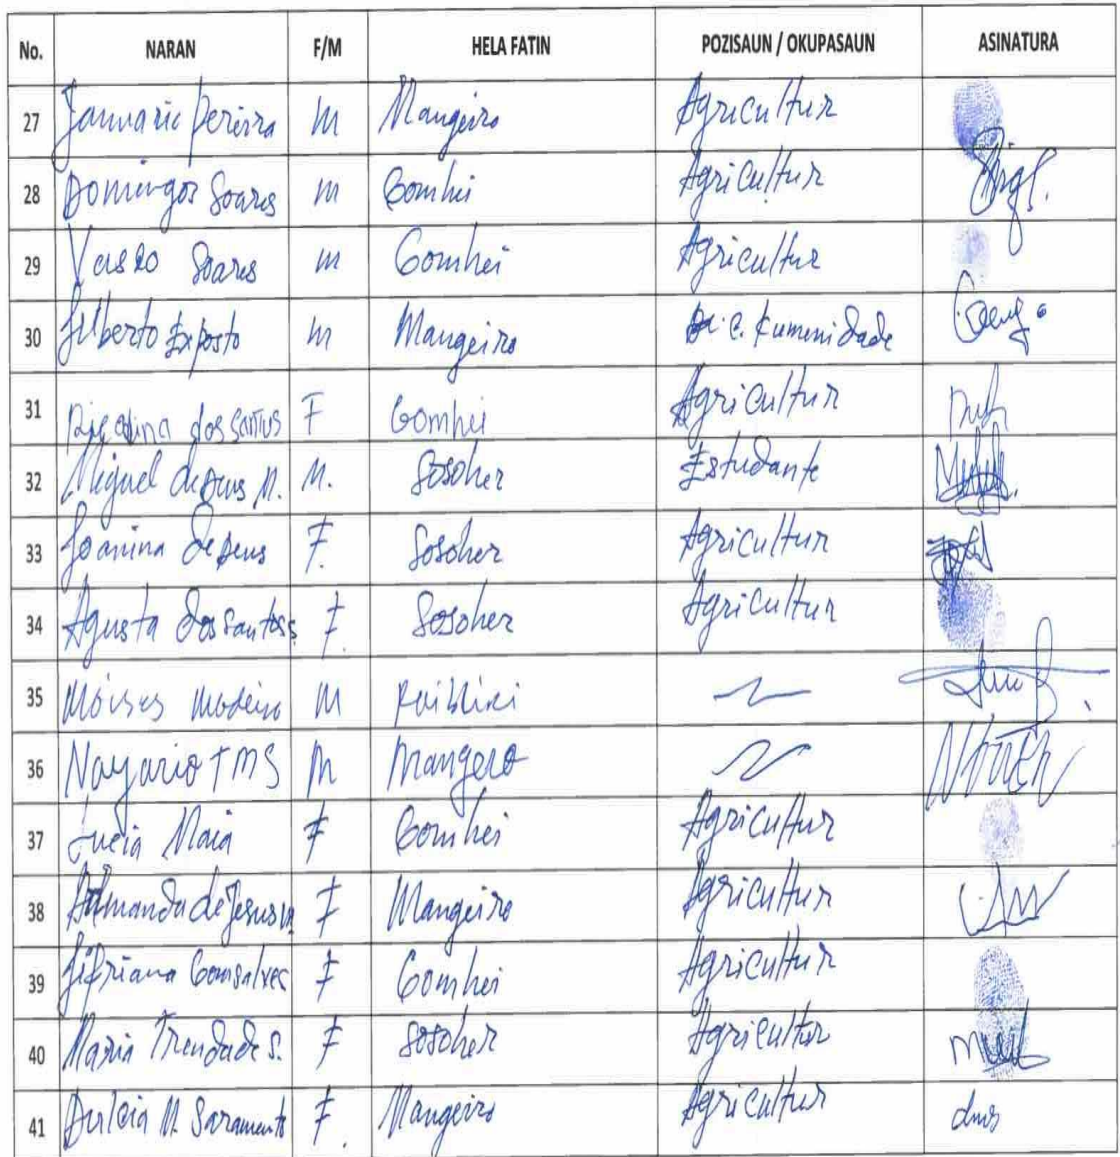 No. NARAN F/M HELA FATIN POZISAUN / OKUPASAUN ASINATURA
27 Januario Pereira M Mangeiro Agricultur
28 Domingos Soares M Comhei Agricultur
29 Vasco Soares M Comhei Agricultur
30 Gilberto Exposto M Mangeiro
31 dos Santos F Comhei Agricultur
32 Miguel de Deus M. M. Sosoher Estudante
33 Joanina de Deus F. Sosoher Agricultur
34 Agusta Dos Santos F. Sosoher Agricultur
35 Moises M
36 M Mangero
37 Lucia Maia F Comhei Agricultur
38 de Jesus F Mangeiro Agricultur
39 Sipriana Gonsalves F Comhei Agricultur
40 Maria Trendade S. F Sosoher Agricultur
41 Dulcia M. Saramento F. Mangeiro Agricultur dms